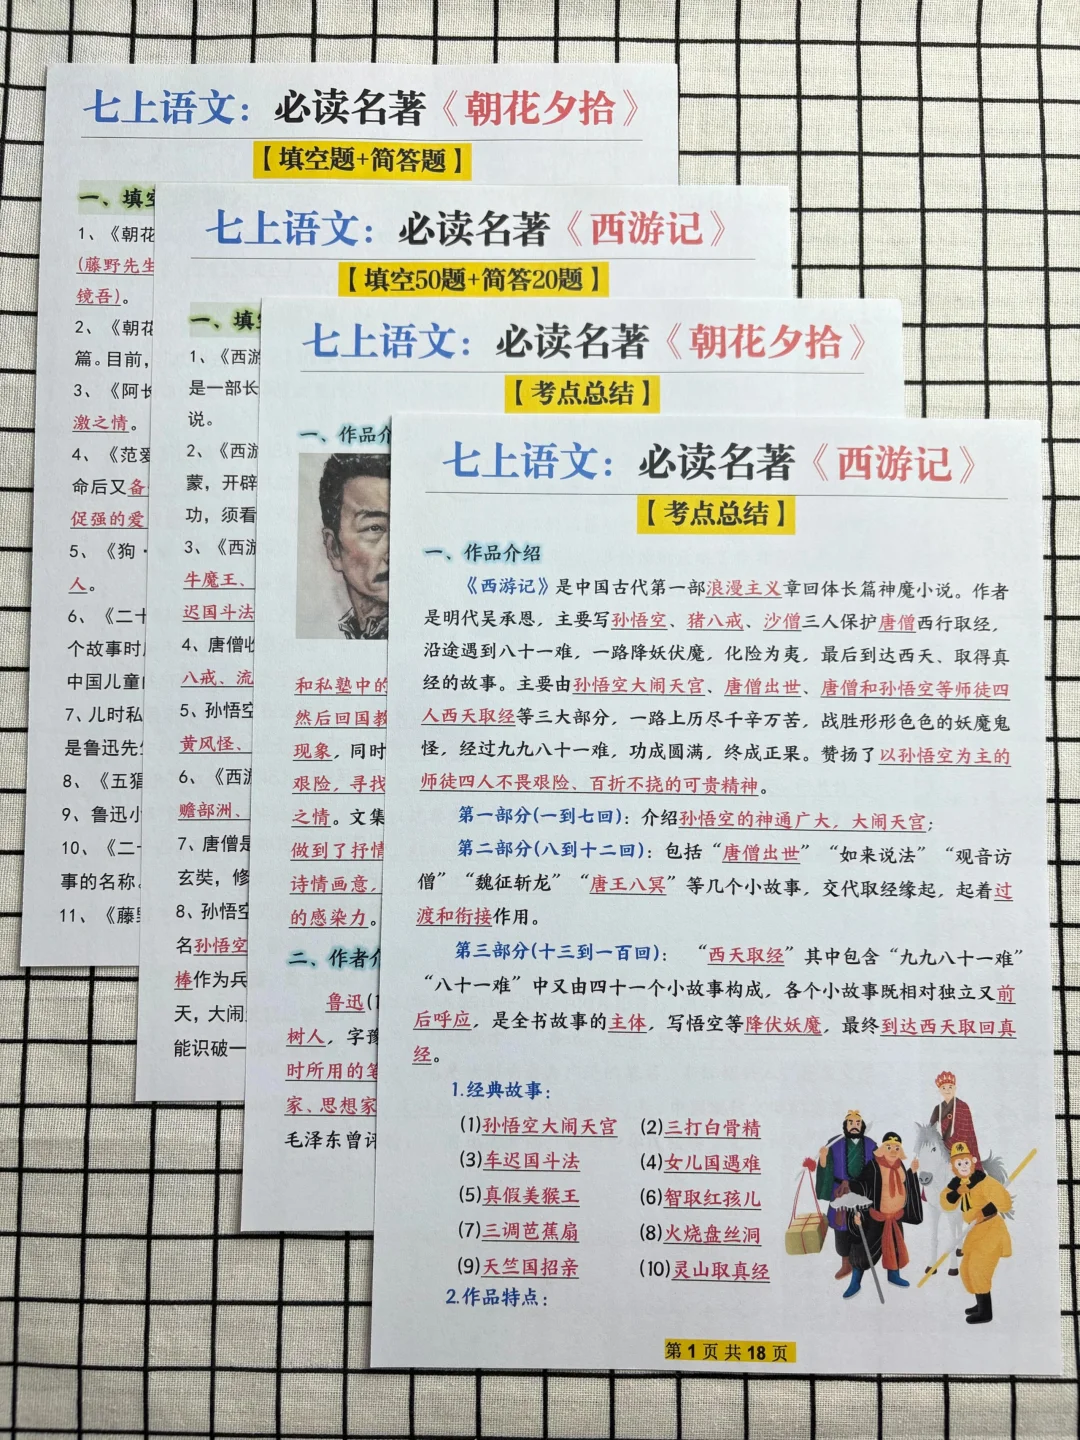 七上语文：必读名著《朝花夕拾》
【填空题+简答题】
一、填空
1、《朝花
(藤野先生
镜吾)。
2、《朝花
篇。目前，
3、《阿长
激之情。
4、《范爱
命后又备
促强的爱
5、《狗·
人。
6、《二十
个故事时
中国儿童
7、儿时私
是鲁迅先
8、《五猖
9、鲁迅小
10、《二
事的名称。
11、《藤野
七上语文：必读名著《西游记》
【填空50题+简答20题】
一、填空
1、《西游
是一部长
说。
2、《西游
蒙，开辟
功，须看
3、《西游
牛魔王、
迟国斗法
4、唐僧收
八戒、流
5、孙悟空
黄风怪、
6、《西游
赡部洲、
7、唐僧是
玄奘，修
8、孙悟空
名孙悟空
棒作为兵
天，大闹
能识破一
七上语文：必读名著《朝花夕拾》
【考点总结】
一、作品介
和私塾中的
然后回国教
现象，同时
艰险，寻找
之情。文集
做到了抒情
诗情画意，
的感染力。
二、作者介
鲁迅(1
树人，字豫
时所用的笔
家、思想家
毛泽东曾评
七上语文：必读名著《西游记》
【考点总结】
一、作品介绍
《西游记》是中国古代第一部浪漫主义章回体长篇神魔小说。作者
是明代吴承恩，主要写孙悟空、猪八戒、沙僧三人保护唐僧西行取经，
沿途遇到八十一难，一路降妖伏魔，化险为夷，最后到达西天、取得真
经的故事。主要由孙悟空大闹天宫、唐僧出世、唐僧和孙悟空等师徒四
人西天取经等三大部分，一路上历尽千辛万苦，战胜形形色色的妖魔鬼
怪，经过九九八十一难，功成圆满，终成正果。赞扬了以孙悟空为主的
师徒四人不畏艰险、百折不挠的可贵精神。
第一部分(一到七回)：介绍孙悟空的神通广大，大闹天宫;
第二部分(八到十二回)：包括“唐僧出世”“如来说法”“观音访
僧”“魏征斩龙”“唐王八冥”等几个小故事，交代取经缘起，起着过
渡和衔接作用。
第三部分(十三到一百回)：“西天取经”其中包含“九九八十一难”
“八十一难”中又由四十一个小故事构成，各个小故事既相对独立又前
后呼应，是全书故事的主体，写悟空等降伏妖魔，最终到达西天取回真
经。
1.经典故事：
(1)孙悟空大闹天宫 (2)三打白骨精
(3)车迟国斗法 (4)女儿国遇难
(5)真假美猴王 (6)智取红孩儿
(7)三调芭蕉扇 (8)火烧盘丝洞
(9)天竺国招亲 (10)灵山取真经
2.作品特点：
第 1 页 共 18 页